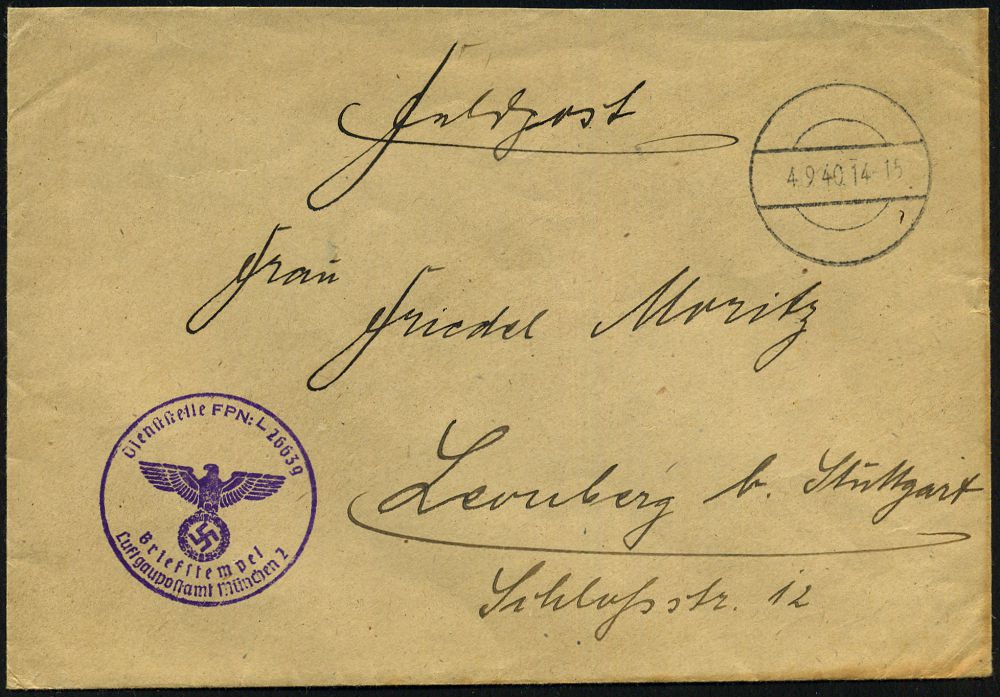 Feldpost
4.9.40.14-15
Frau
Friedel Moritz
Leonberg b. Stuttgart
Schloßstr. 12
Dienststelle FPN: L 26639
Briefstempel
Luftgaupostamt München 2